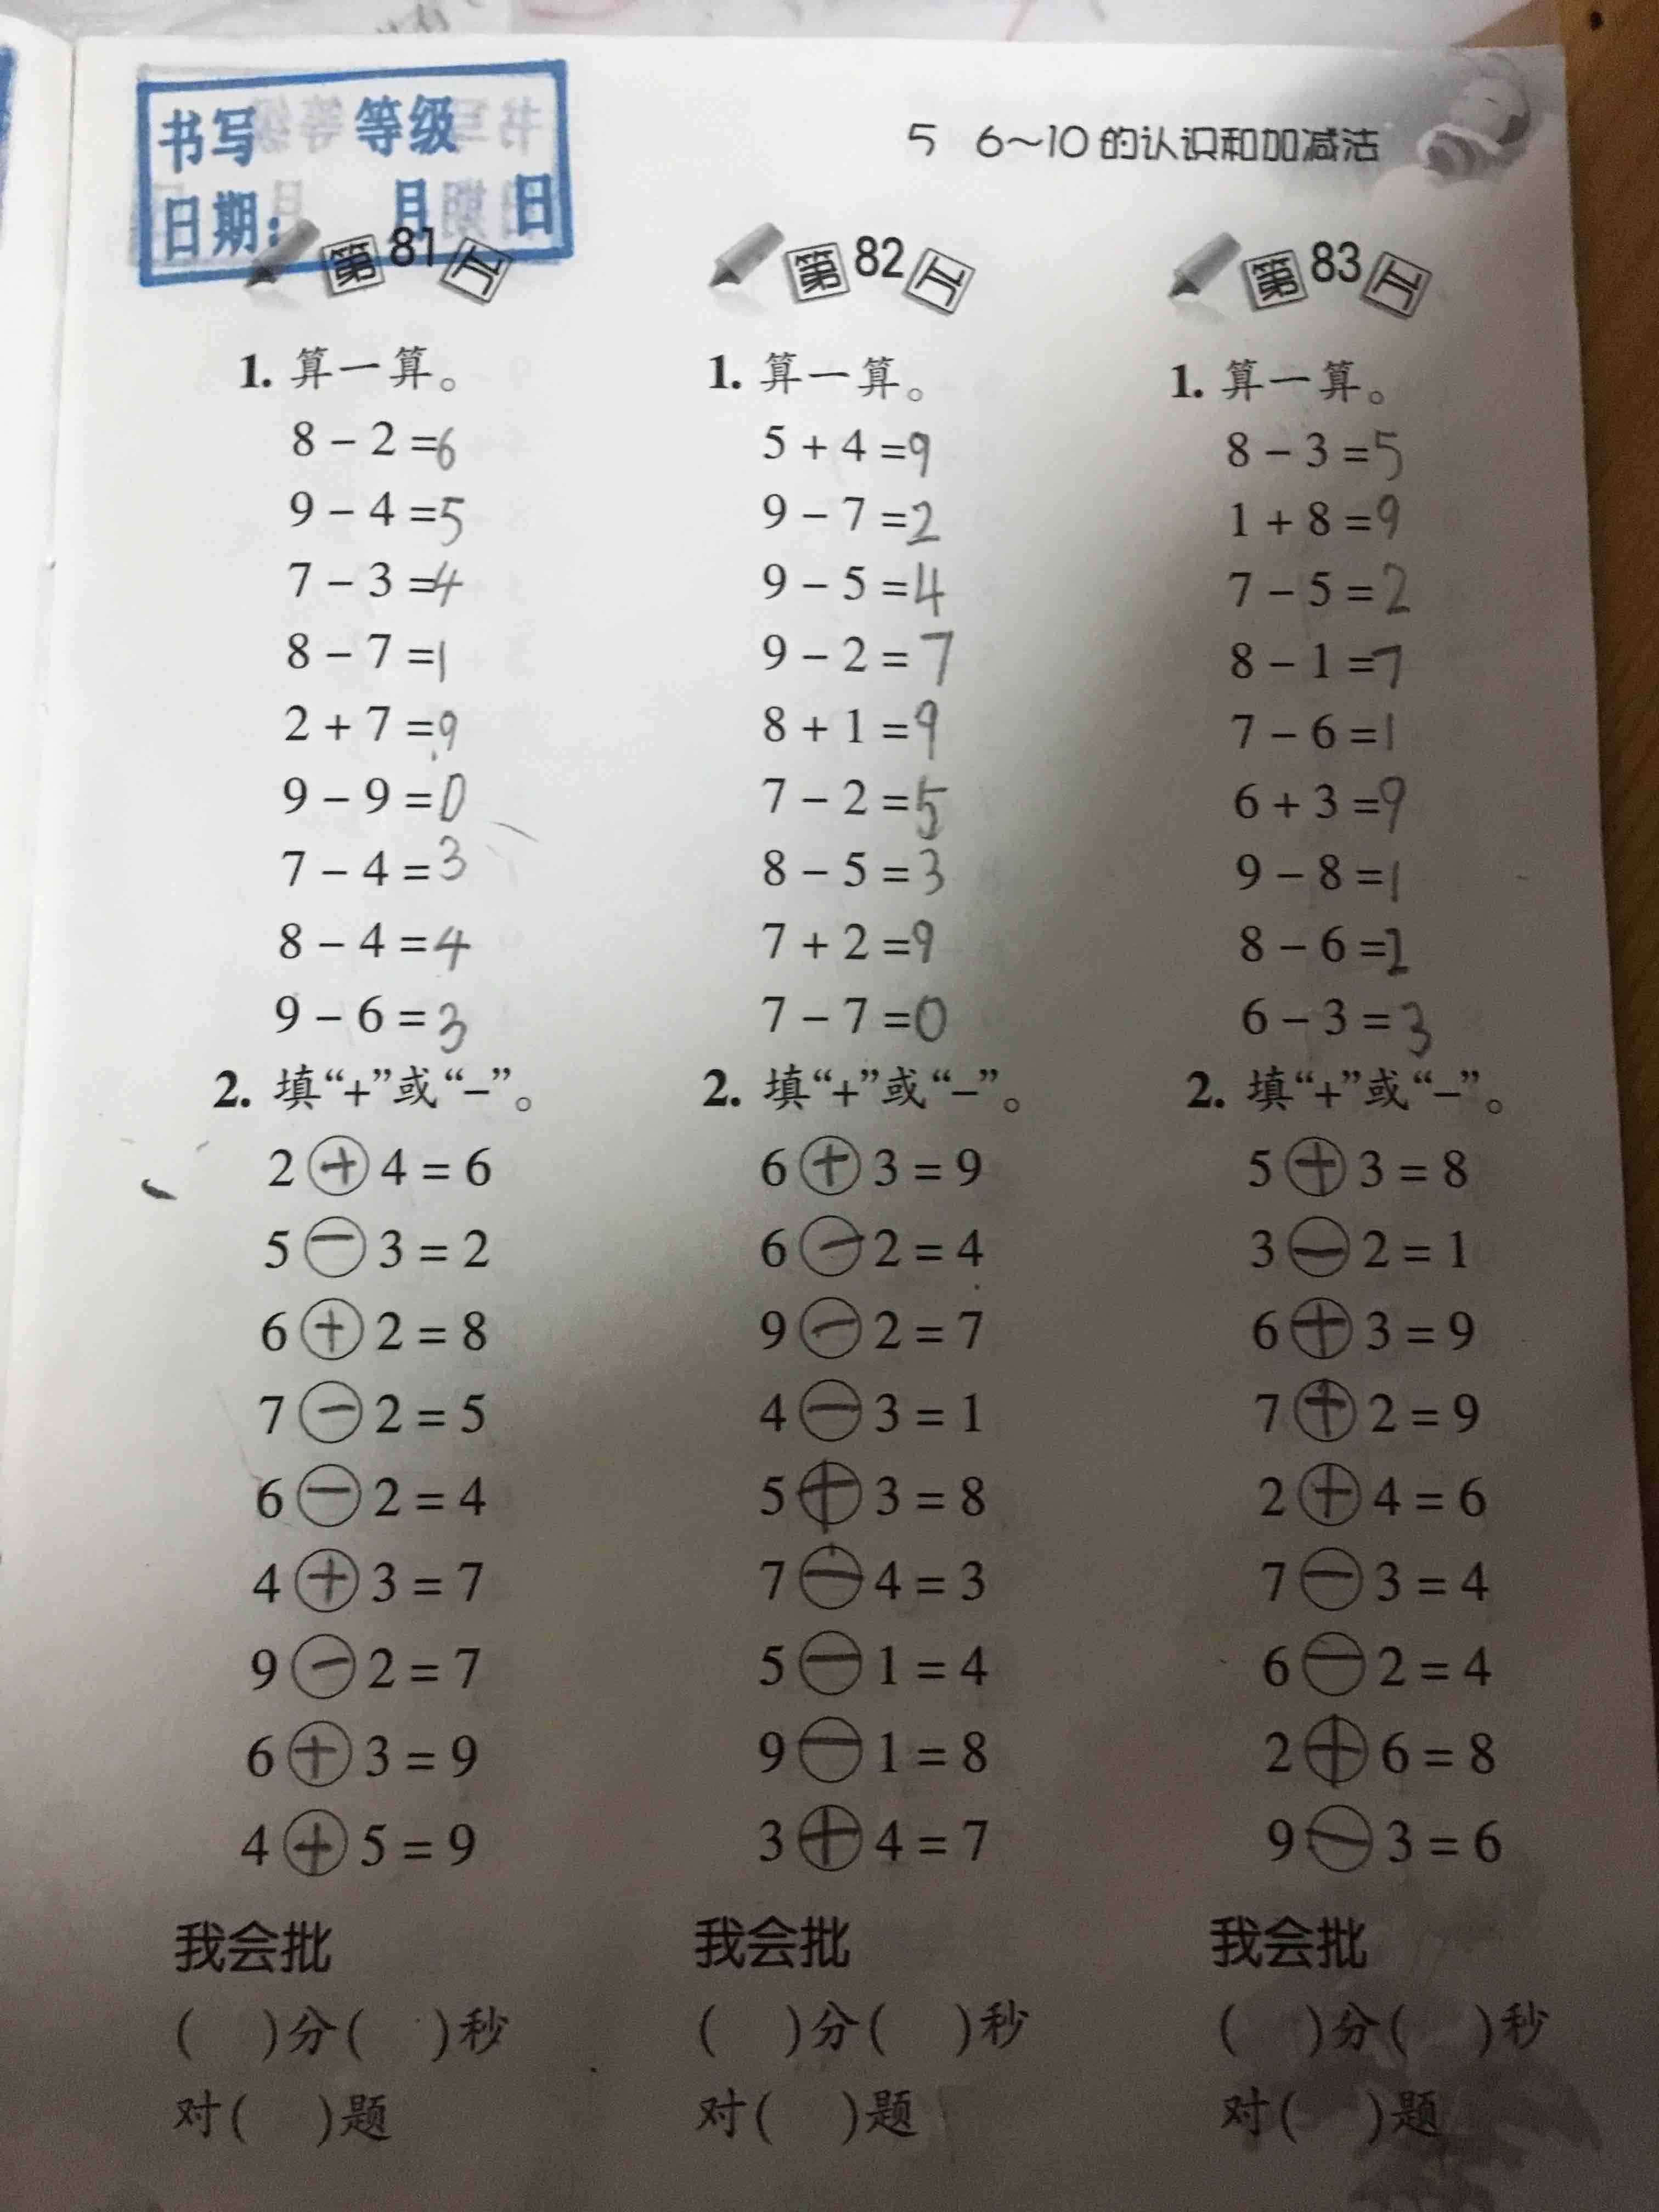 书写 等级
日期： 月 日
5 6～10的认识和加减法
第81天
1. 算一算。
8－2=6
9－4=5
7－3=4
8－7=1
2＋7=9
9－9=0
7－4=3
8－4=4
9－6=3
2. 填“+”或“－”。
2＋4=6
5－3=2
6＋2=8
7－2=5
6－2=4
4＋3=7
9－2=7
6＋3=9
4＋5=9
我会批
( )分( )秒
对( )题
第82天
1. 算一算。
5＋4=9
9－7=2
9－5=4
9－2=7
8＋1=9
7－2=5
8－5=3
7＋2=9
7－7=0
2. 填“+”或“－”。
6＋3=9
6－2=4
9－2=7
4－3=1
5＋3=8
7－4=3
5－1=4
9－1=8
3＋4=7
我会批
( )分( )秒
对( )题
第83天
1. 算一算。
8－3=5
1＋8=9
7－5=2
8－1=7
7－6=1
6＋3=9
9－8=1
8－6=2
6－3=3
2. 填“+”或“－”。
5＋3=8
3－2=1
6＋3=9
7＋2=9
2＋4=6
7－3=4
6－2=4
2＋6=8
9－3=6
我会批
( )分( )秒
对( )题